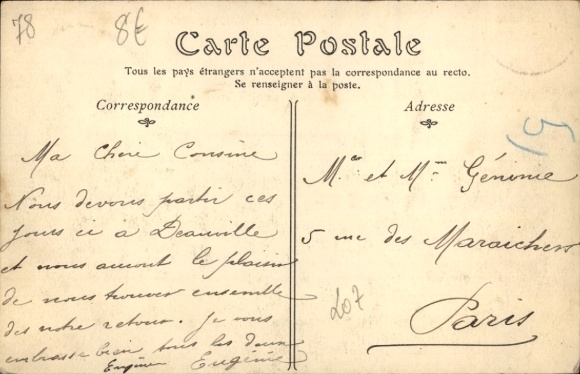 78
8€
Carte Postale
Tous les pays étrangers n'acceptent pas la correspondance au recto.
Se renseigner à la poste.
Correspondance
Ma Chere Cousine
Nous devons partir ces
jours ci à Deauville
et nous auront le plaisir
de nous trouver ensemble
des notre retour. Je vous
embrasse bien tous les deux
Eugénie
Adresse
et Mme
5 rue des Maraichers
Paris
207